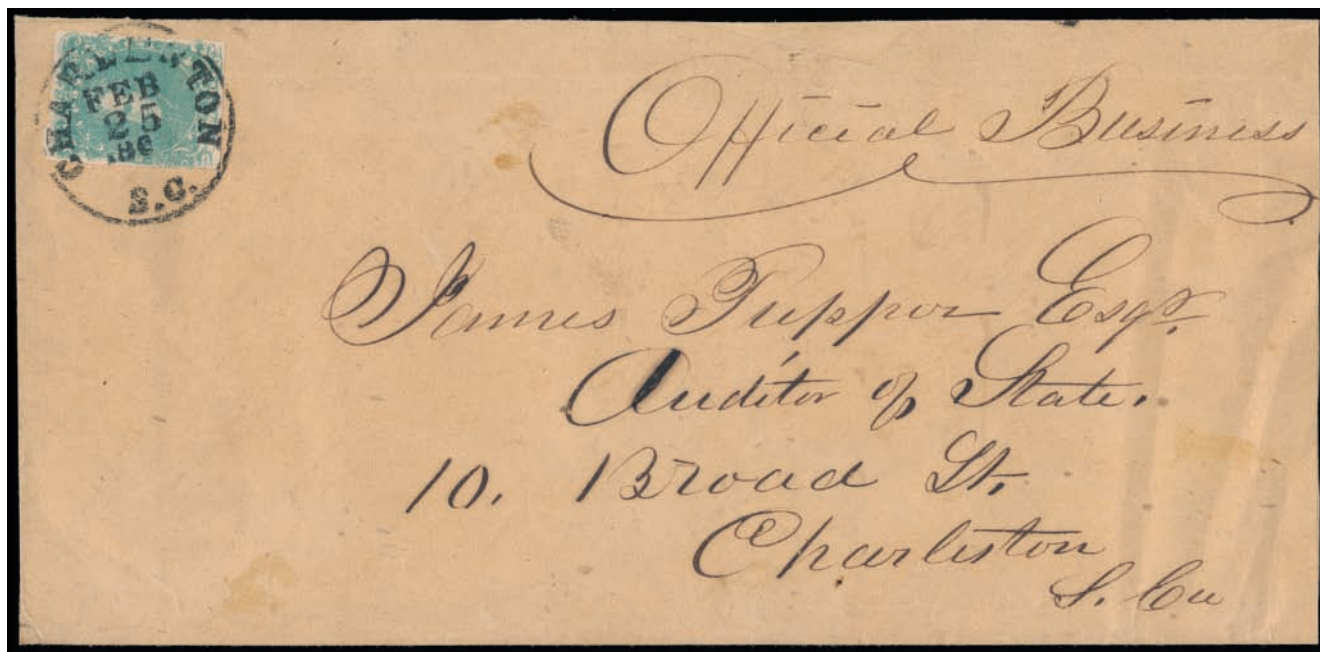 CHARLESTON
FEB
25
186
S.C.
Official Business
James Tupper Esqr.
Auditor of State.
10. Broad St.
Charleston
S. Ca